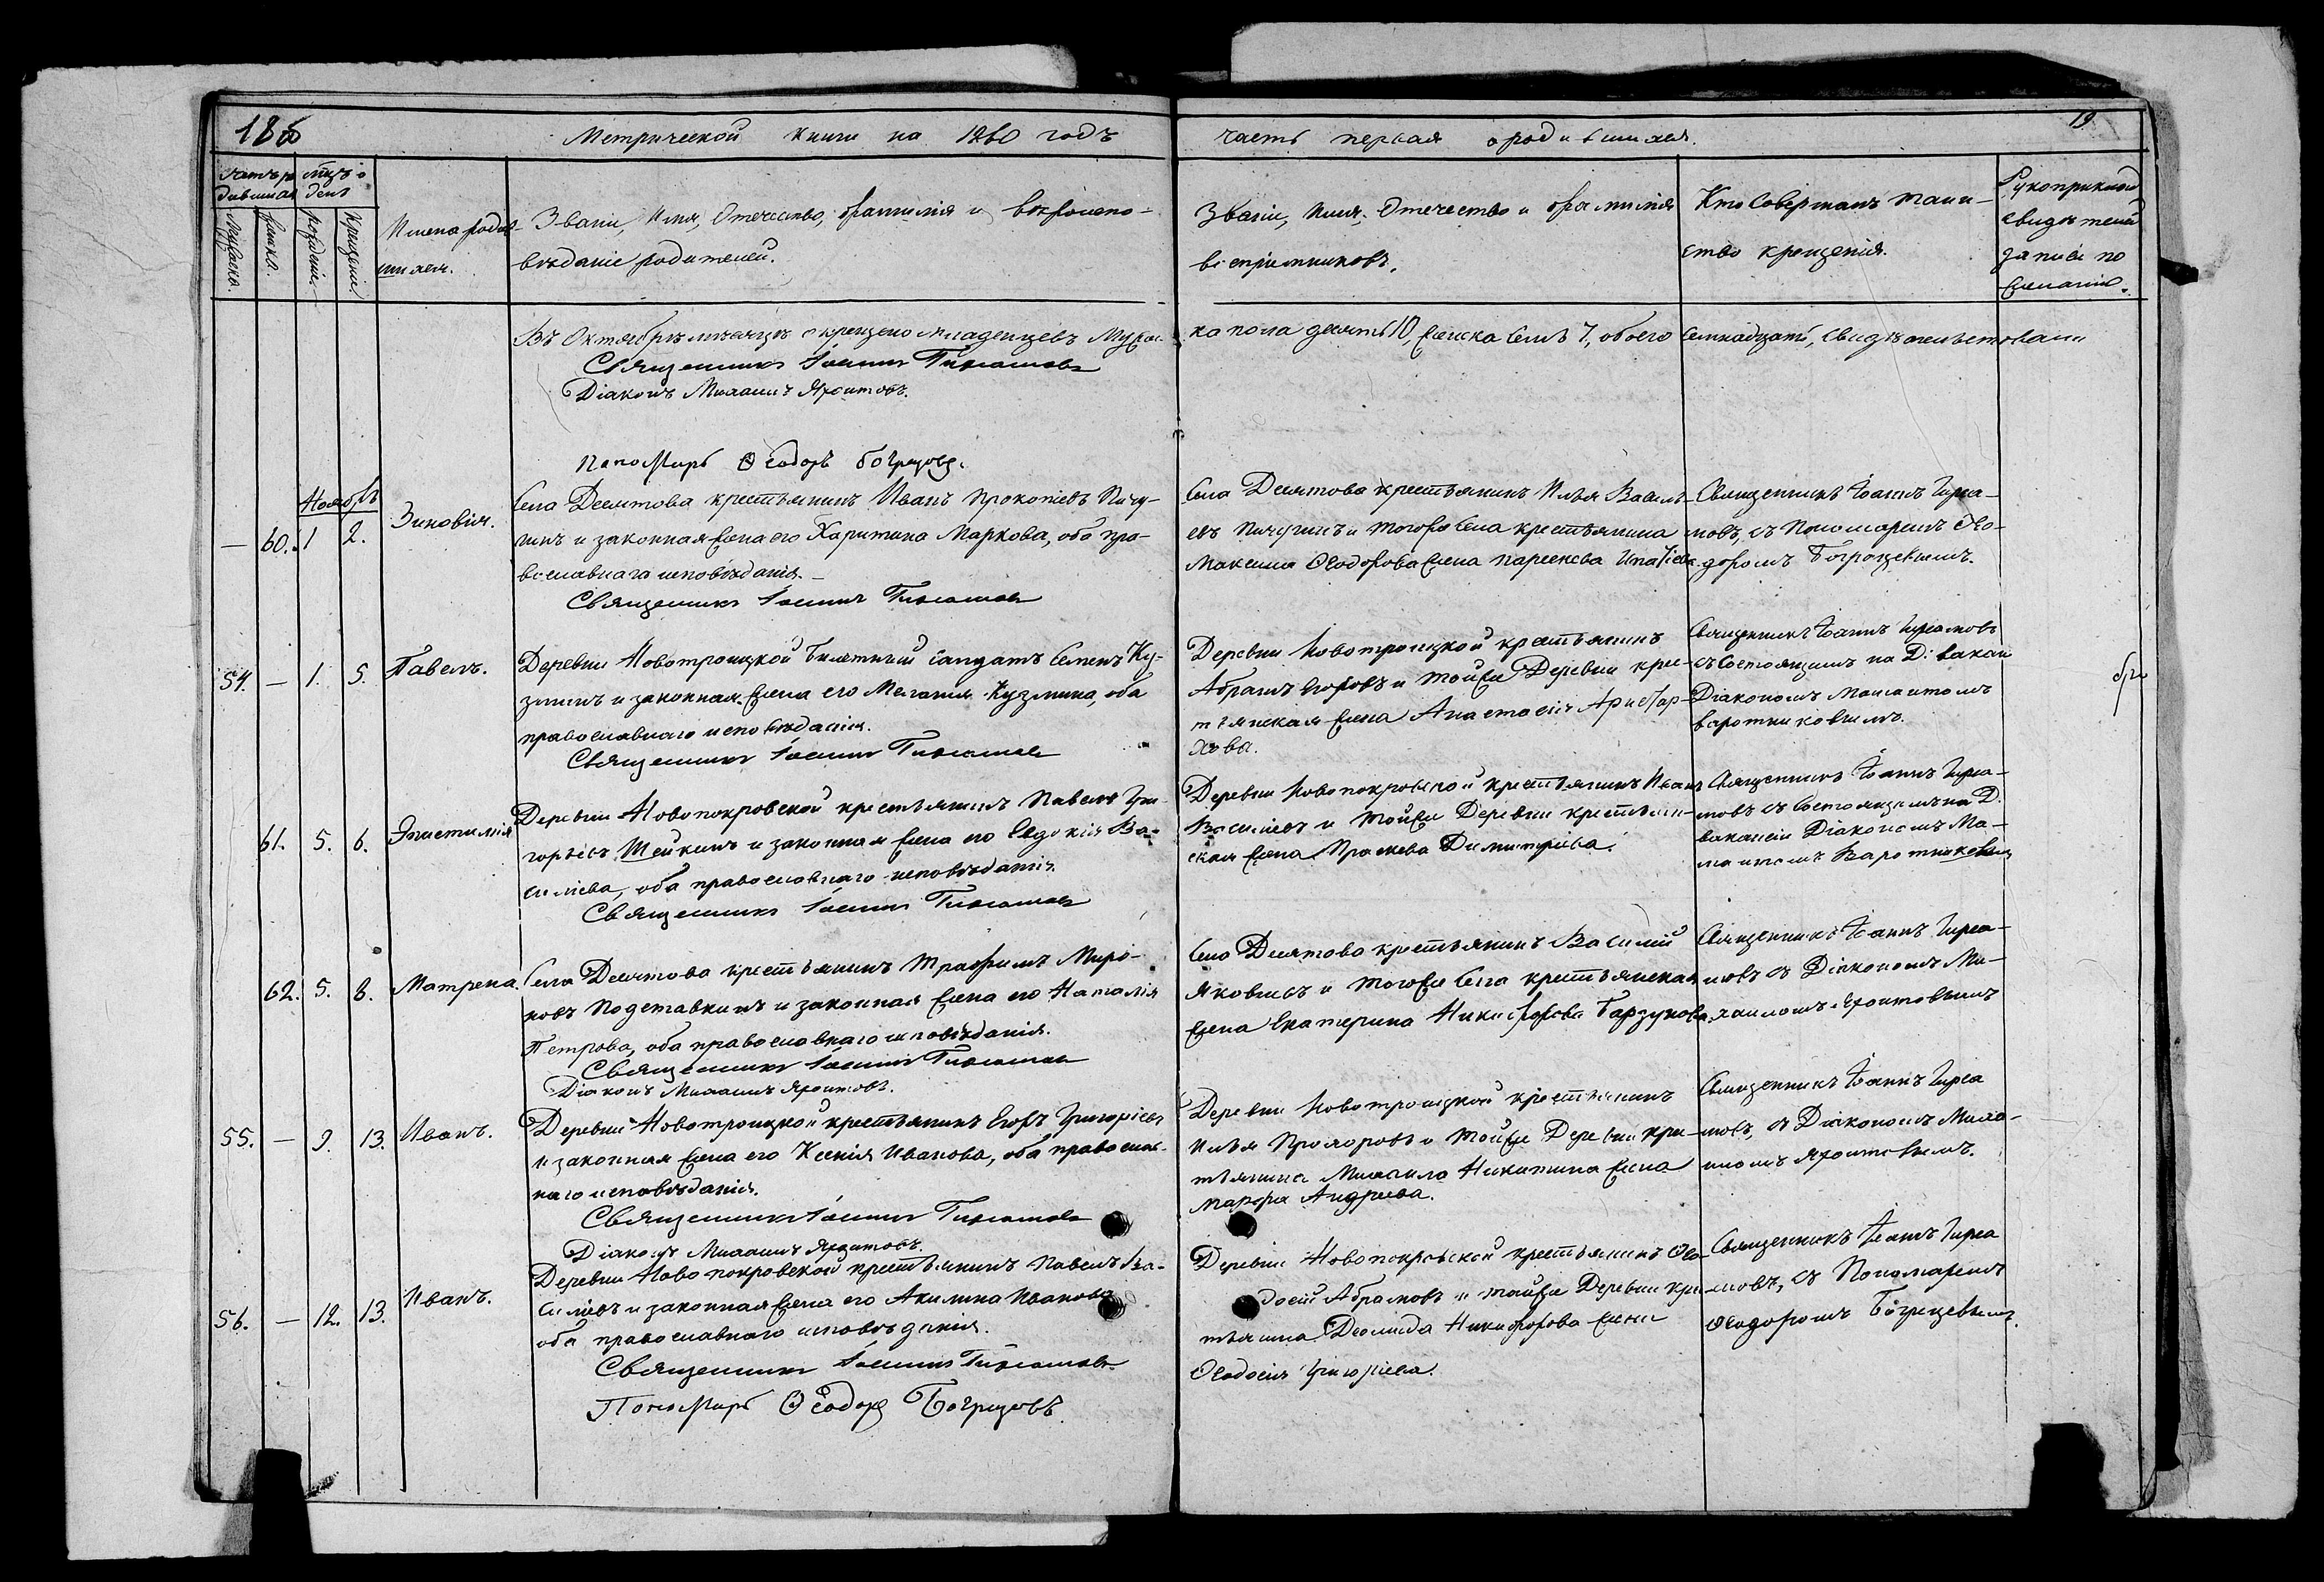 186
Метрической книги на 1860 годъ
часть первая о родившихся.
19
Имена родив-
шихся.
Званіе, Имя, Отечество, фамилія и вѣроиспо-
вѣданіе родителей.
Званіе, Имя, Отечество и фамилія
воспріемниковъ.
Кто Совершалъ таин-
ство крещенія.
Рукоприклад
свидѣтелей
записи по
желанію.
Мужеска.
Женска.
рожденіе
Крещеніе
Въ Октябрѣ мѣсяцѣ окрещено младенцевъ Мужес-
ка пола десять 10, женска семь 7, обоего семнадцать, свидѣтельствовали
Священникъ Іоаннъ
Діаконъ Михаилъ
Пономарь Ѳеодоръ
Ноябрь
— 60. 1 2.
Зиновія.
Села Десятова крестьянинъ Иванъ Прокопіевъ Пичу-
гинъ и законная жена его Харитина Маркова, оба пра-
вославнаго исповѣданія.
Священникъ Іоаннъ
Села Десятова крестьянинъ Илья Василь-
евъ Пичугинъ и тогоже села крестьянина
Максима Ѳеодорова жена Параскева Ипатіева
Священникъ Іоаннъ
мовъ, съ Пономаремъ Ѳео-
доромъ
54. — 1. 5.
Павелъ.
Деревни Новотроицкой билетный салдатъ Семенъ Ку-
зминъ и законная жена его Меланія Кузмина, оба
православнаго исповѣданія.
Священникъ Іоаннъ
Деревни Новотроицкой крестьянинъ
Абрамъ Егоровъ и тойже Деревни крес-
тьянская жена Анастасія Аристар-
хова.
Священникъ Іоаннъ
съ состоящимъ на Д. вакан
Діакономъ
Воротниковымъ.
61. 5. 6.
Эпистимія
Деревни Новопокровской крестьянинъ Павелъ Гри-
горьевъ Шейкинъ и законная жена его Евдокія Ва-
силіева, оба православнаго исповѣданія.
Священникъ Іоаннъ
Деревни Новопокровской крестьянинъ Иванъ
Василіевъ и тойже Деревни крестьян-
ская жена Праскева Димитріева.
Священникъ Іоаннъ
мовъ съ состоящимъ на Д.
вакансіи Діакономъ
Воротниковым
62. 5. 8.
Матрена.
Села Десятова крестьянинъ Трафимъ Миро-
новъ Подставкинъ и законная жена его Наталія
Петрова, оба православнаго исповѣданія.
Священникъ Іоаннъ
Діаконъ Михаилъ
Села Десятова крестьянинъ Василій
Яковлевъ и тогоже села крестьянская
жена Екатерина Никифорова Барзукова
Священникъ Іоаннъ
мовъ съ Діакономъ Ми-
хаиломъ
55. — 9. 13.
Иванъ.
Деревни Новотроицкой крестьянинъ Егоръ Григоріевъ
и законная жена его Ксенія Иванова, оба православ-
наго исповѣданія.
Священникъ Іоаннъ
Діаконъ Михаилъ
Деревни Новотроицкой крестьянинъ
Илья Прохоровъ и тойже Деревни крес-
тьянина Михаила Никитина жена
Марфа Андреева.
Священникъ Іоаннъ
мовъ, съ Діакономъ Миха-
иломъ
56. — 12. 13.
Иванъ.
Деревни Новопокровской крестьянинъ Павелъ Ва-
силіевъ и законная жена его Акилина Иванова
оба православнаго исповѣданія.
Священникъ Іоаннъ
Пономарь Ѳеодоръ
Деревни Новопокровской крестьянинъ Ѳео-
досій Абрамовъ и тойже Деревни крес-
тьянина Деомида Никифорова жена
Ѳеодосія Григоріева.
Священникъ Іоаннъ
мовъ, съ Пономаремъ
Ѳеодоромъ